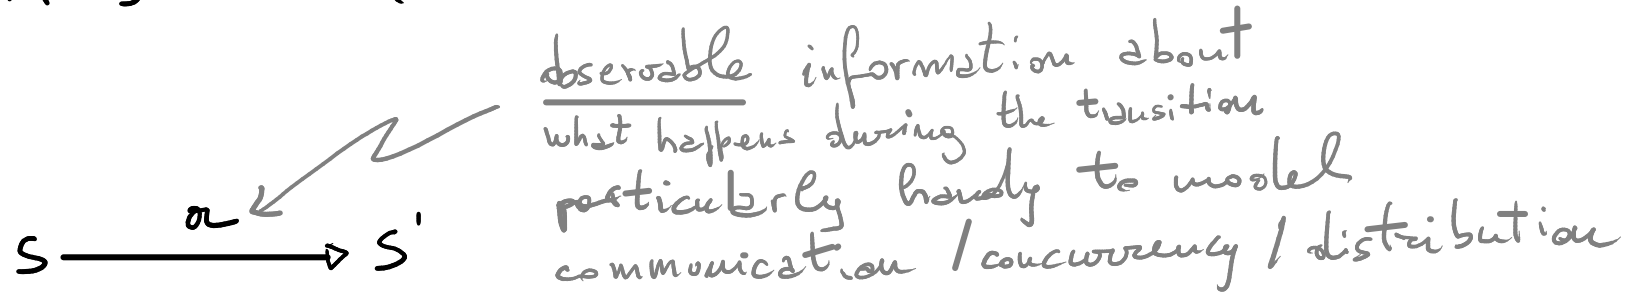 observable information about
what happens during the transition
particularly handy to model
communication / concurrency / distribution
α
S → S'